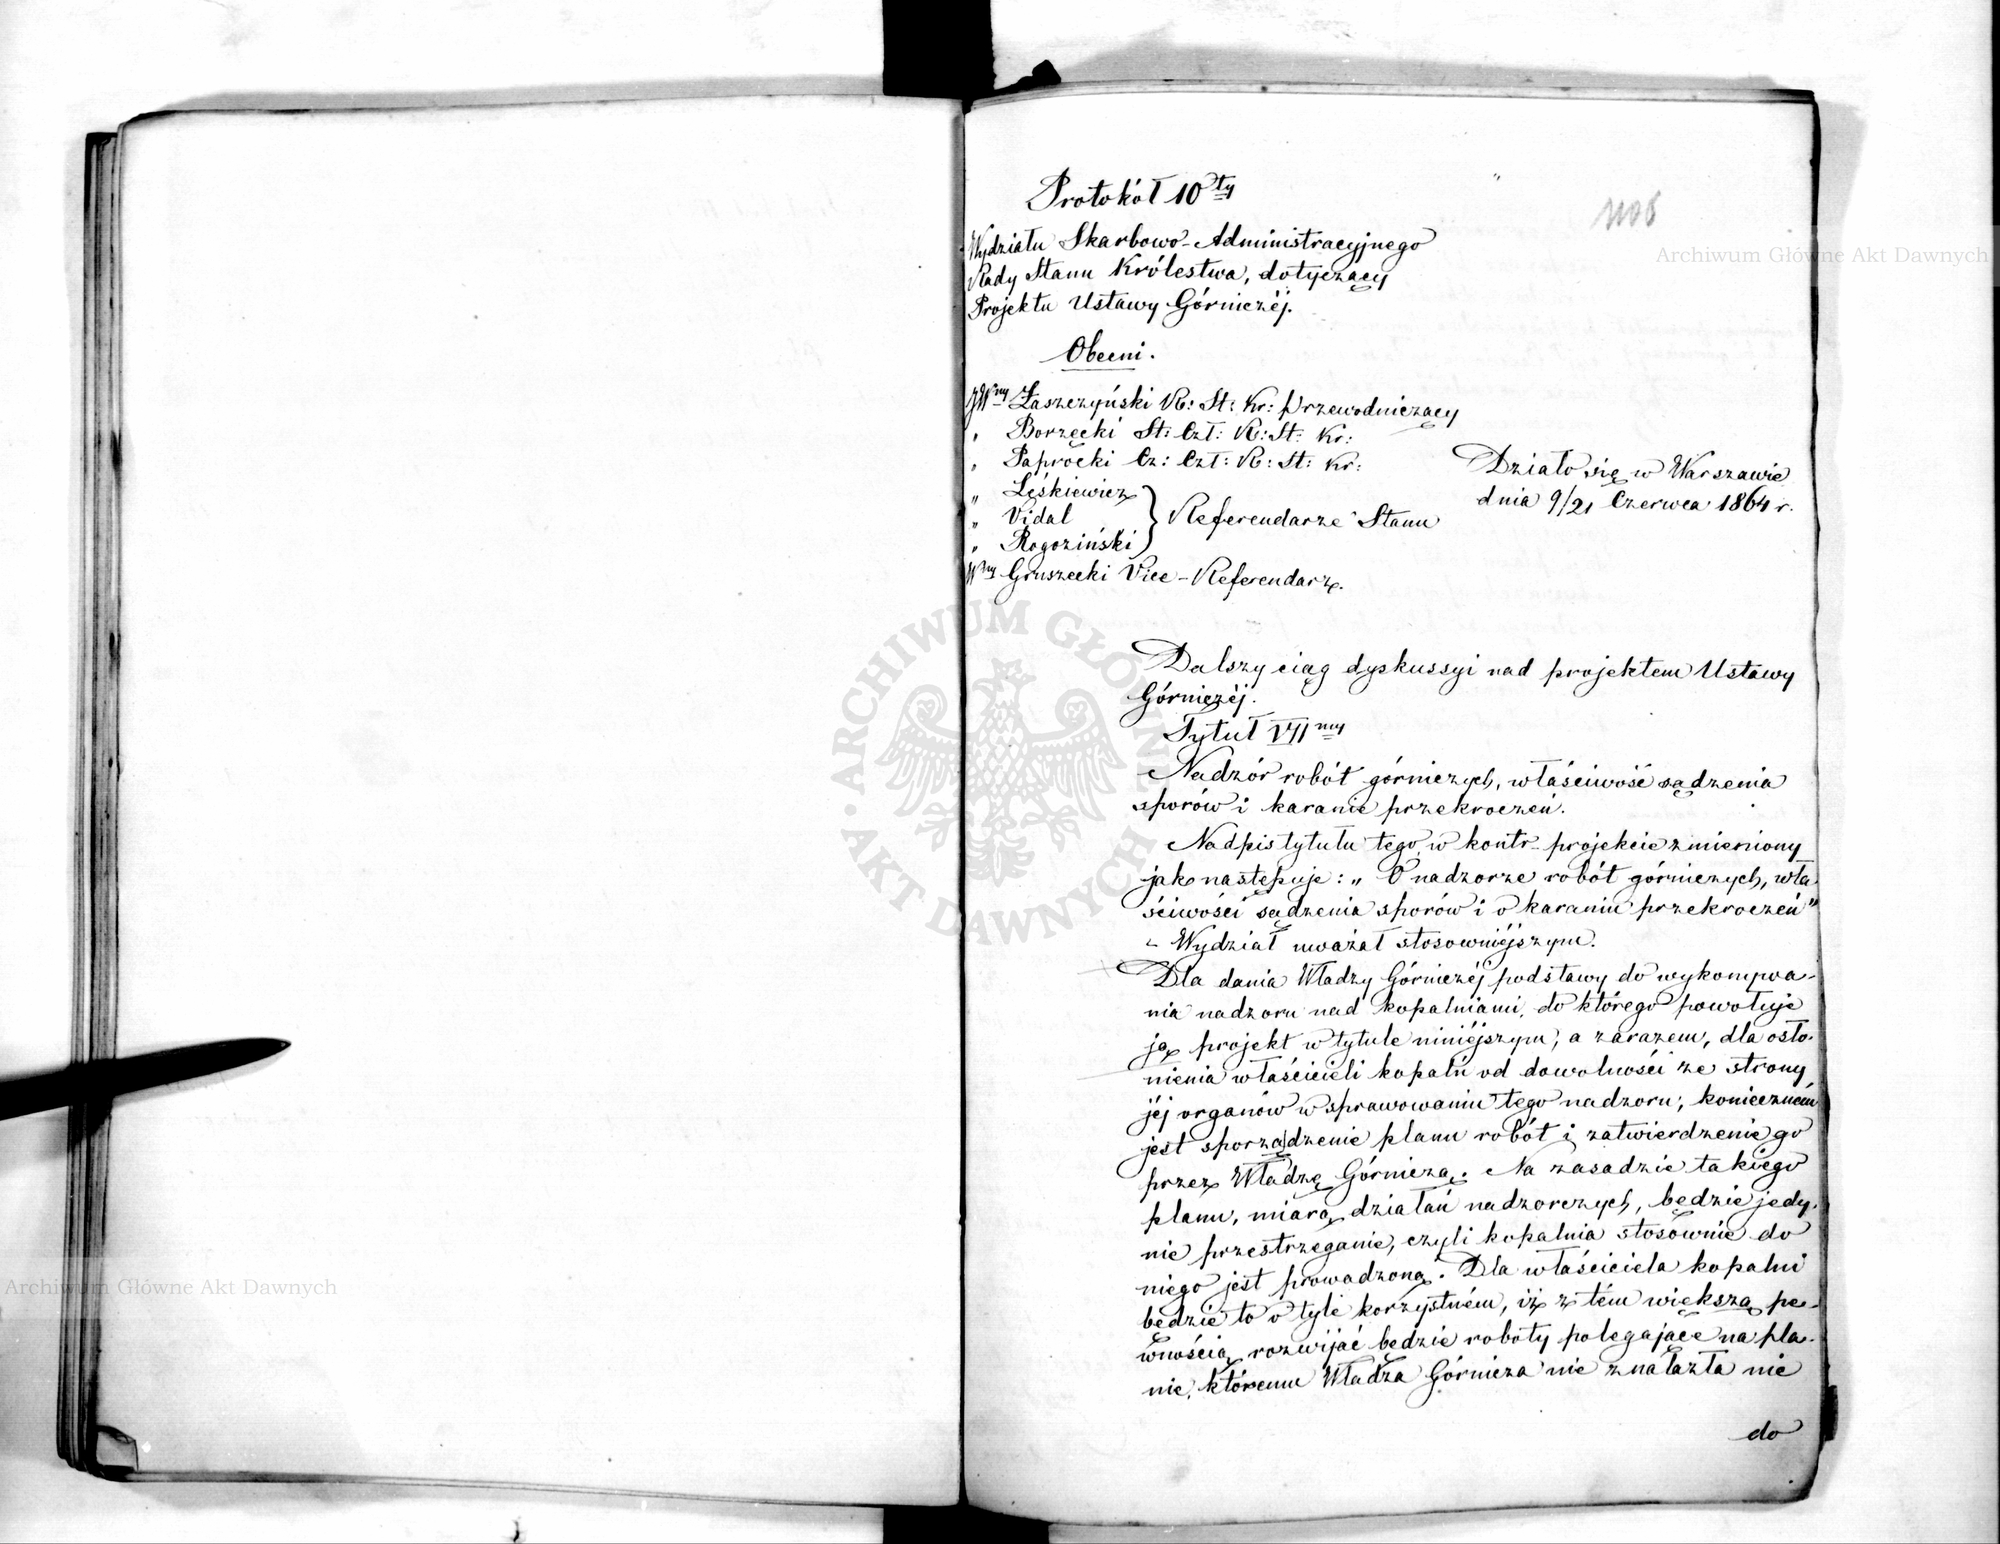 Protokół 10ty
Wydziału Skarbowo-Administracyjnego
Rady Stanu Królestwa, dotyczący
Projektu Ustawy Górniczéj.
Obecni.
JWny Łaszczyński R: St: Kr: Przewodniczący
„ Borzęcki St: Czł: R: St: Kr:
„ Paprocki Cz: Czł: R: St: Kr:
„ Lęskiewicz
„ Vidal
„ Rogoziński
Referendarze Stanu
Wny Gruszecki Vice-Referendarz.
Działo się w Warszawie
dnia 9/21 Czerwca 1864 r.
Dalszy ciąg dyskussyi nad projektem Ustawy
Górniczéj.
Tytuł VIImy
Nadzór robót górniczych, właściwość sądzenia
sporów i karanie przekroczeń.
Nadpis tytułu tego w kontr-projekcie zmieniony
jak następuje: „O nadzorze robót górniczych, wła
ściwości sądzenia sporów i o karaniu przekroczeń”
Wydział uważał stosowniéjszym.
Dla dania Władzy Górniczéj podstawy do wykonywa-
nia nadzoru nad kopalniami, do którego powołuje
ją projekt w tytule niniéjszym, a zarazem, dla osło-
nienia właścicieli kopalń od dowolności ze strony
jéj organów w sprawowaniu tego nadzoru, konieczném
jest sporządzenie planu robót i zatwierdzenie go
przez Władzę Górniczą. Na zasadzie takiego
planu, miarą działań nadzorczych, będzie jedy-
nie przestrzeganie, czyli kopalnia stosownie do
niego jest prowadzoną. Dla właściciela kopalni
będzie to o tyle korzystném, iż z tém większą pe-
wnością rozwijać będzie roboty polegające na pla-
nie, któremu Władza Górnicza nie znalazła nic
do
Archiwum Główne Akt Dawnych
Archiwum Główne Akt Dawnych
ARCHIWUM GŁÓWNE AKT DAWNYCH